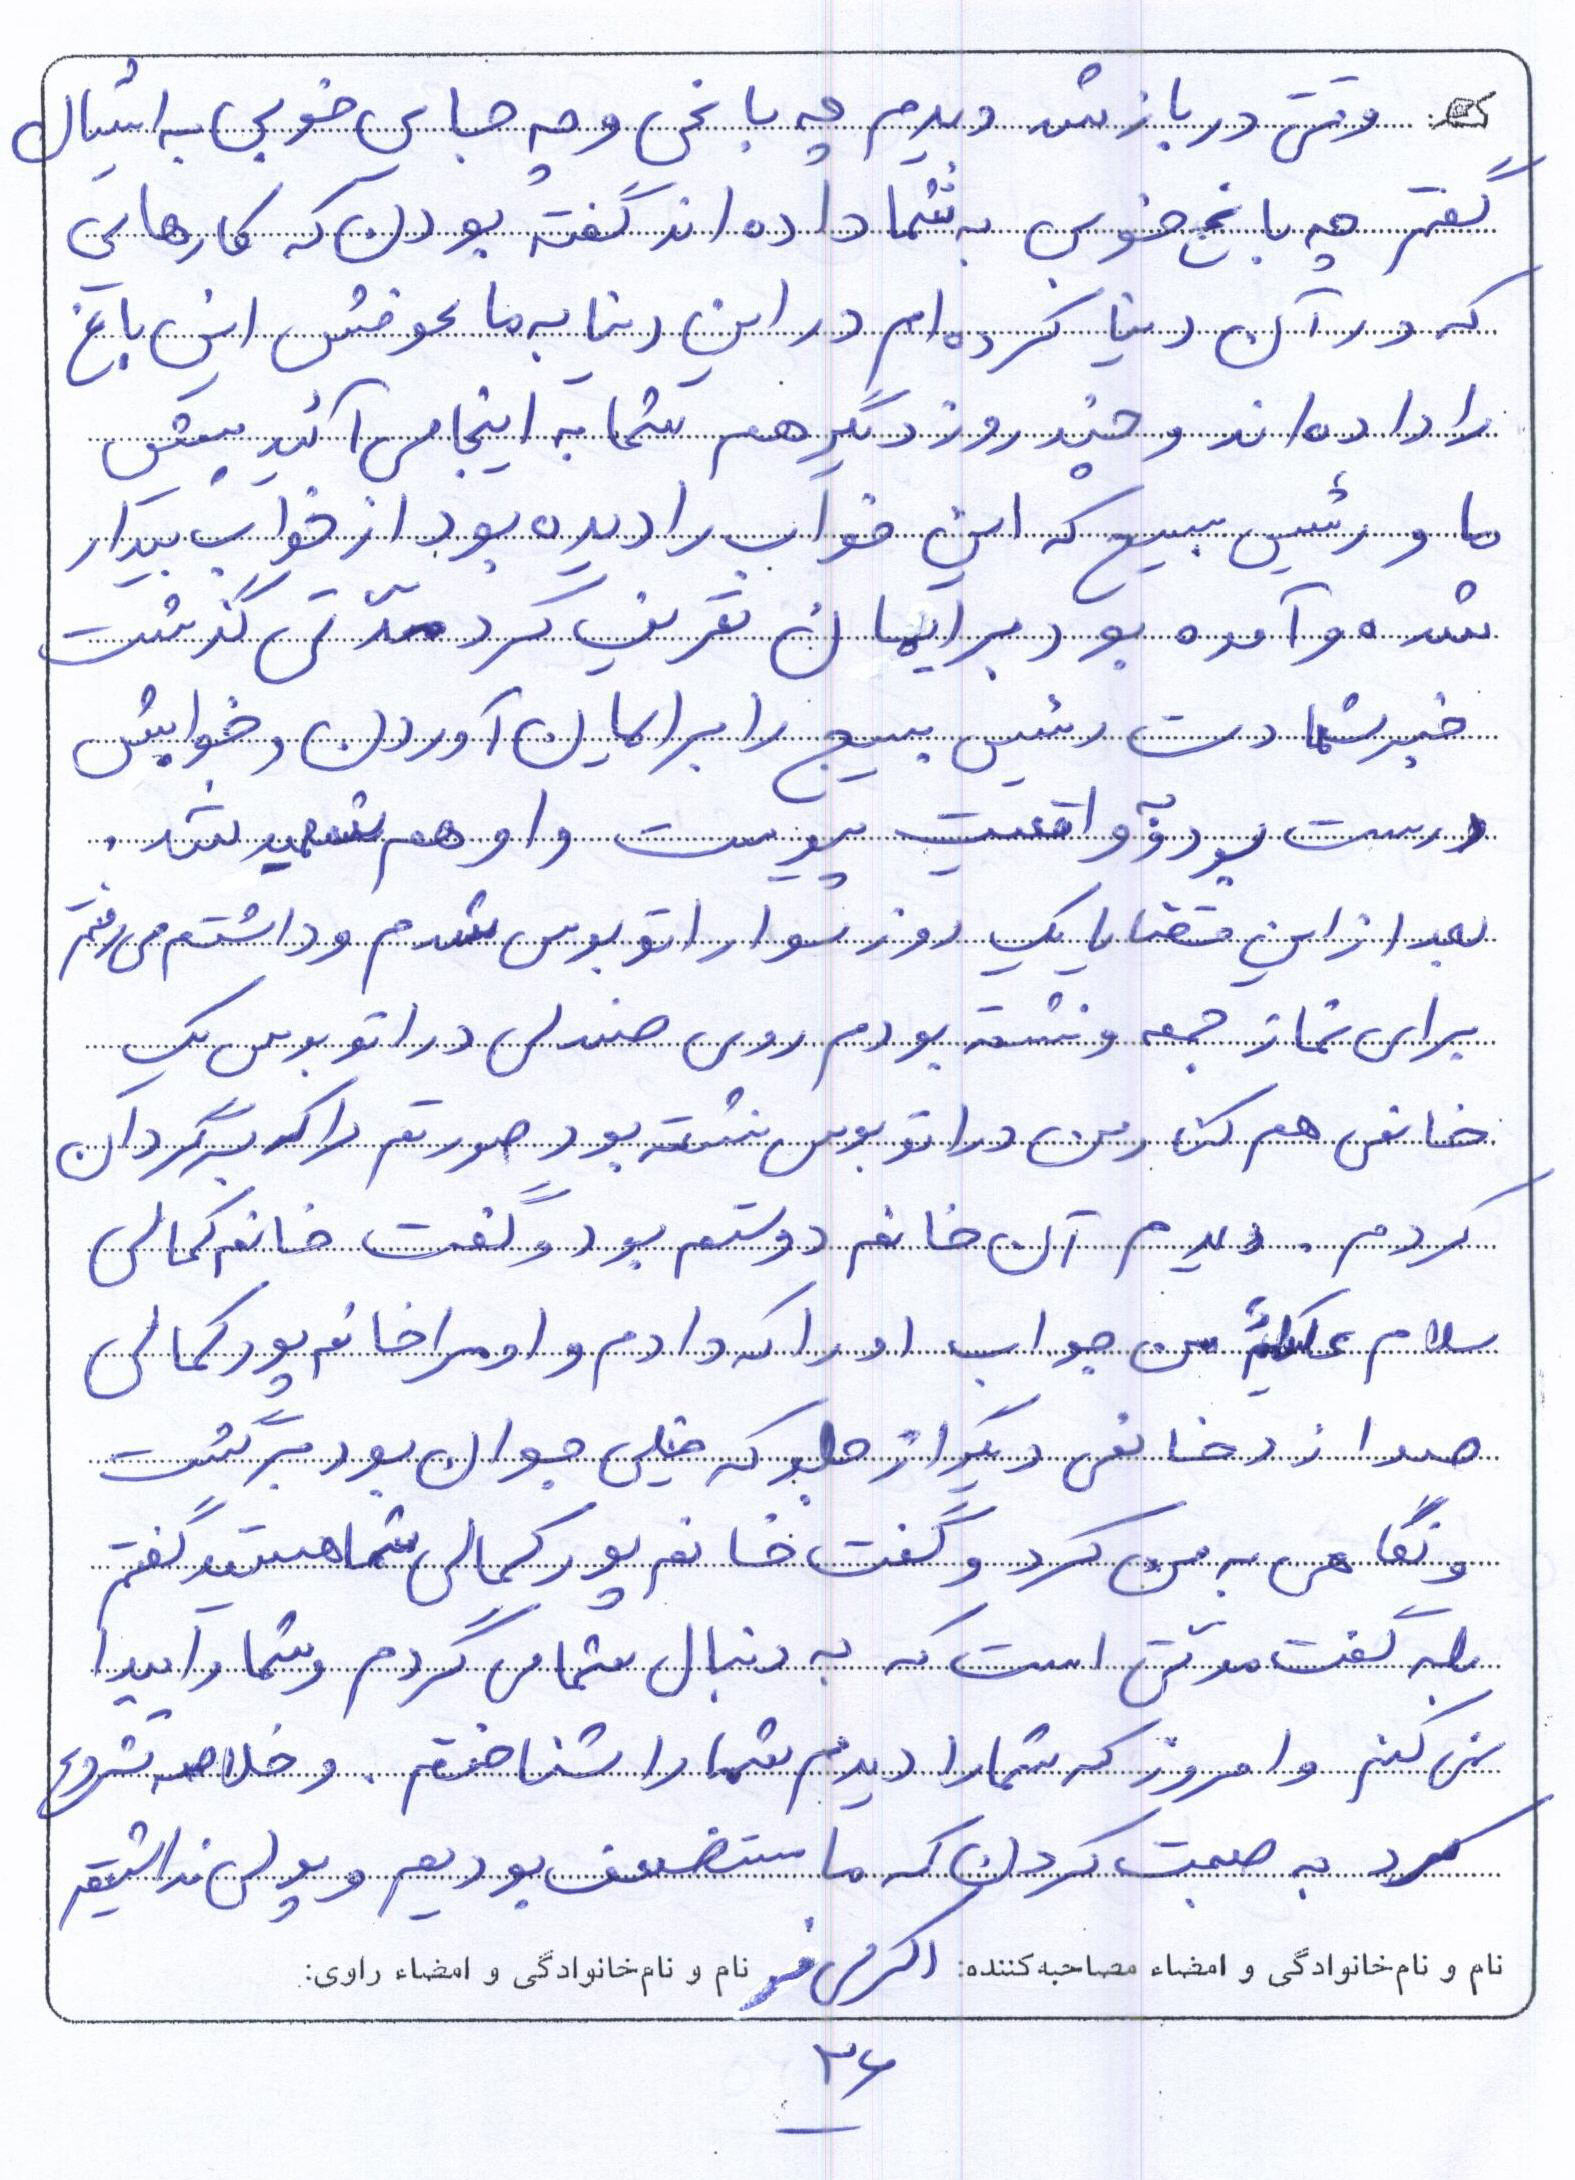 وقتی در باز شد دیدم چه باغی و چه جبایی خوبی به اشیال
گفتم چه باغ خوبی به شما داده اند گفته بودن که کارهایی
که در آن دنیا کرده ام در این دنیا به ما عوضش این باغ
را داده اند و چند روز دیگر هم شما به اینجا می آئید پیش
ما و رئیس بسیج که این خواب را دیده بود از خواب بیدار
شده و آمده بود برایمان تعریف کرد مدّتی گذشت
خبر شهادت رئیس بسیج را برایمان آوردن و خوابش
درست بود و به واقعیت پیوست و او هم شهید شد.
بعد از این قضایا یک روز سوار اتوبوس شدم و داشتم می رفتم
برای نماز جمعه و نشسته بودم روی صندلی در اتوبوس یک
خانمی هم کنار من در اتوبوس نشسته بود صورتم را که برگردان
کردم. دیدم آن خانم دوستم بود و گفت خانم کمالی
سلام علیکم من جواب او را که دادم و او مرا خانم پورکمالی
صدا زد خانمی دیگر از جلو که خیلی جوان بود برگشت
و نگاهی به من کرد و گفت خانم پورکمالی شما هستید گفتم
بله گفت مدّتی است که به دنبال شما می گردم و شما را پیدا
نمی کنم و امروز که شما را دیدم شما را شناختم. و خلاصه شروع
کرد به صحبت کردن که ما مستضعف بودیم و پولی نداشتیم
نام و نام‌خانوادگی و امضاء مصاحبه‌کننده: اکرمی فر نام و نام‌خانوادگی و امضاء راوی:
۳۶